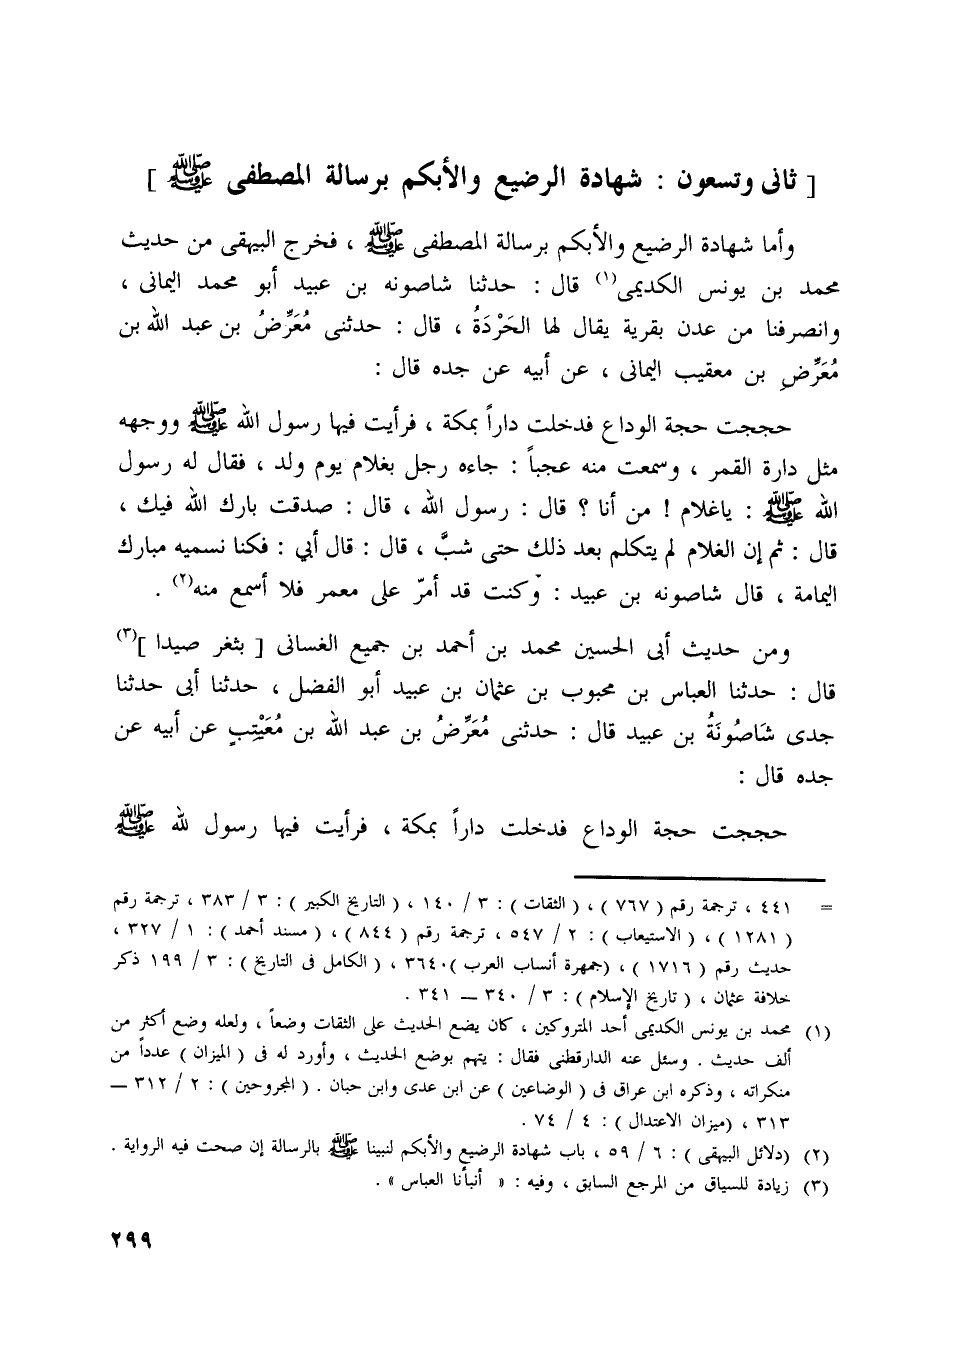 [ ثانى وتسعون : شهادة الرضيع والأبكم برسالة المصطفى ﷺ ]
وأما شهادة الرضيع والأبكم برسالة المصطفى ﷺ ، فخرج البيهقى من حديث
محمد بن يونس الكديمى(١) قال : حدثنا شاصونه بن عبيد أبو محمد اليمانى ،
وانصرفنا من عدن بقرية يقال لها الحَرْدَةُ ، قال : حدثنى مُعَرِّضُ بن عبد الله بن
مُعَرِّضِ بن معقيب اليمانى ، عن أبيه عن جده قال :
حججت حجة الوداع فدخلت داراً بمكة ، فرأيت فيها رسول الله ﷺ ووجهه
مثل دارة القمر ، وسمعت منه عجباً : جاءه رجل بغلام يوم ولد ، فقال له رسول
الله ﷺ : ياغلام ! من أنا ؟ قال : رسول الله ، قال : صدقت بارك الله فيك ،
قال : ثم إن الغلام لم يتكلم بعد ذلك حتى شبَّ ، قال : قال أبي : فكنا نسميه مبارك
اليمامة ، قال شاصونه بن عبيد : وكنت قد أمرّ على معمر فلا أسمع منه(٢) .
ومن حديث أبى الحسين محمد بن أحمد بن جميع الغسانى [ بثغر صيدا ](٣)
قال : حدثنا العباس بن محبوب بن عثمان بن عبيد أبو الفضل ، حدثنا أبى حدثنا
جدى شَاصُونَةُ بن عبيد قال : حدثنى مُعَرِّضُ بن عبد الله بن مُعَيْتِبٍ عن أبيه عن
جده قال :
حججت حجة الوداع فدخلت داراً بمكة ، فرأيت فيها رسول لله ﷺ
= ٤٤١ ، ترجمة رقم ( ٧٦٧ ) ، ( الثقات ) : ٣ / ١٤٠ ، ( التاريخ الكبير ) : ٣ / ٣٨٣ ، ترجمة رقم
( ١٢٨١ ) ، ( الاستيعاب ) : ٢ / ٥٤٧ ، ترجمة رقم ( ٨٤٤ ) ، ( مسند أحمد ) : ١ / ٣٢٧ ،
حديث رقم ( ١٧١٦ ) ، (جمهرة أنساب العرب )٣٦٤٠ ، ( الكامل فى التاريخ ) : ٣ / ١٩٩ ذكر
خلافة عثمان ، ( تاريخ الإسلام ) : ٣ / ٣٤٠ — ٣٤١ .
(١) محمد بن يونس الكديمى أحد المتروكين ، كان يضع الحديث على الثقات وضعاً ، ولعله وضع أكثر من
ألف حديث . وسئل عنه الدارقطنى فقال : يتهم بوضع الحديث ، وأورد له فى ( الميزان ) عدداً من
منكراته ، وذكره ابن عراق فى ( الوضاعين ) عن ابن عدى وابن حبان . ( المجروحين ) : ٢ / ٣١٢ —
٣١٣ ، (ميزان الاعتدال ) : ٤ / ٧٤ .
(٢) (دلائل البيهقى ) : ٦ / ٥٩ ، باب شهادة الرضيع والأبكم لنبينا ﷺ بالرسالة إن صحت فيه الرواية .
(٣) زيادة للسياق من المرجع السابق ، وفيه : « أنبأنا العباس » .
٢٩٩